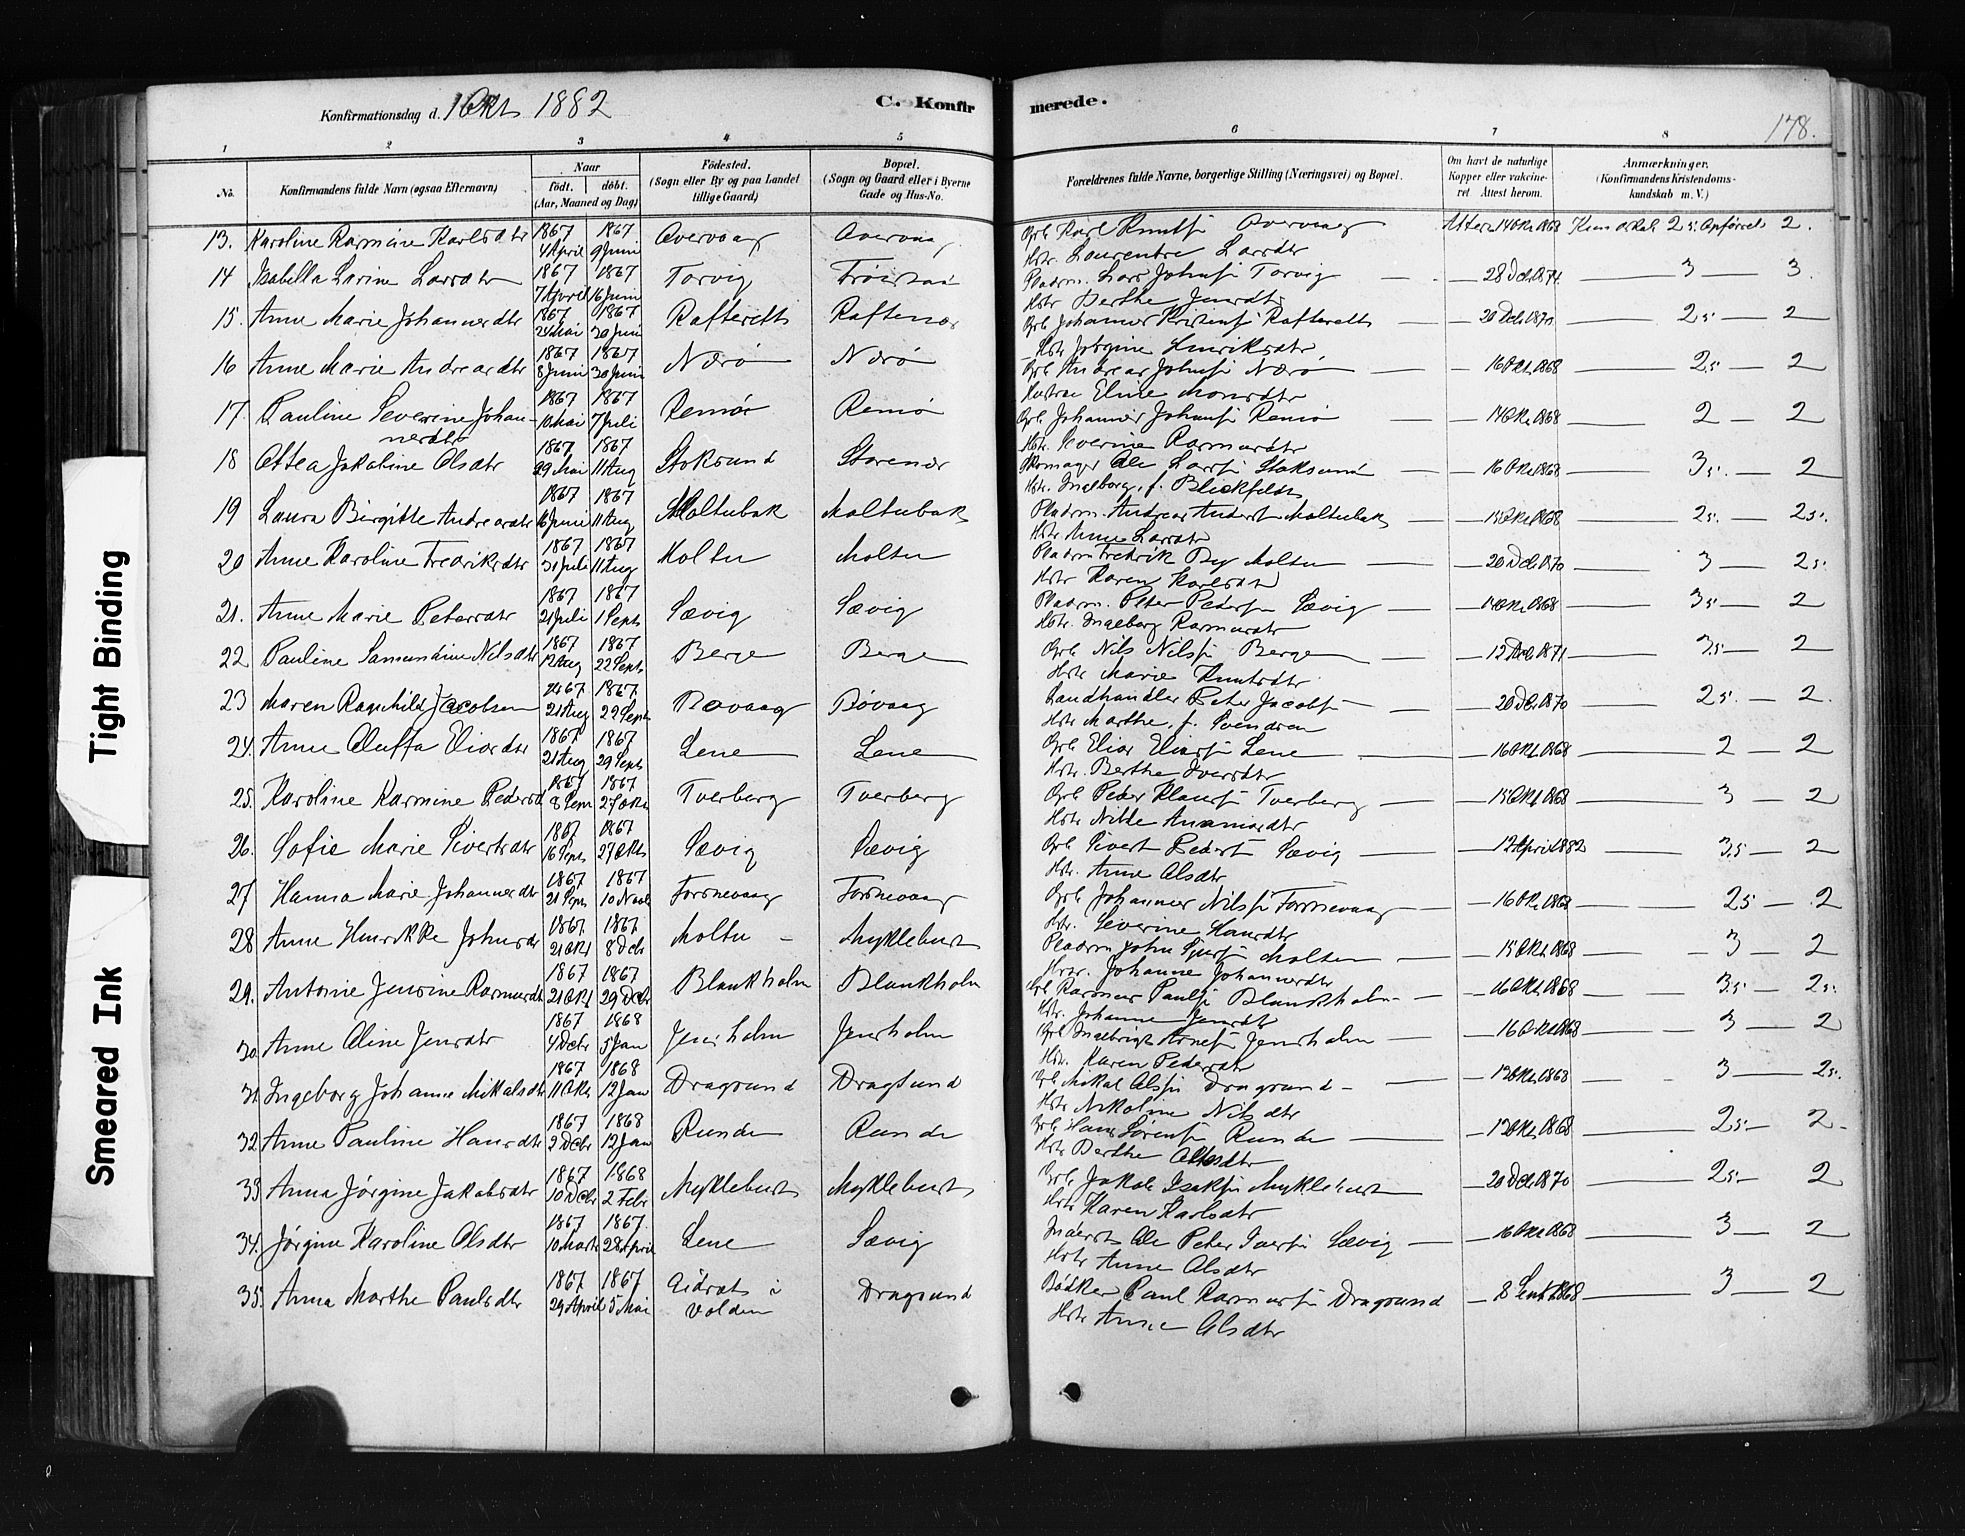 Konfirmationsdag d. 1 Okt 1882
C. Konfirmerede.
178.
1 2 3 4 5 6 7 8
No.
Konfirmandens fulde Navn (ogsaa Efternavn)
Naar
født. døbt.
(Aar, Maaned og Dag)
Fødested.
(Sogn eller By og paa Landet
tillige Gaard)
Bopæl.
(Sogn og Gaard eller i Byerne
Gade og Hus-No.
Forældrenes fulde Navne, borgerlige Stilling (Næringsvei) og Bopæl.
Om havt de naturlige
Kopper eller vakcine-
ret Attest herom.
Anmærkninger.
(Konfirmandens Kristendoms-
kundskab m. V.)
13. Karoline Rasmine Karlsdtr 1867 4 April 1867 9 Juni Overvaag Overvaag Grb Karl Knuts Overvaag 14 Okt 1868 Kundskab 2.5. Opførsel 2.
Hstr. Laurentse Larsdtr
14 Isabella Larine Larsdtr 1867 7 April 1867 16 Juni Torvig Pladsm. Lars Johns Torvig 28 Dcb 1874 3 3.
Hstr Berthe Jensdtr
15. Anne Marie Johannesdtr 1867 24 Mai 1867 30 Juni Rafteseth Raftenes Grb Johannes Kristens Rafteseth 20 Dcb 1870 2.5 2
Hstr Jørgine Henriksdtr
16 Anne Marie Andreasdtr 1867 8 Juni 1867 30 Juni Nærø Nærø Grb Andreas Johns Nærø 16 Okt 1868 2.5 2
Hustru Eline Monsdtr
17. Pauline Severine Johan-
nesdtr 1867 10 Mai 1867 7 Juli Remø Remø Grb Johannes Johans Remø 14 Okt 1868 2 2
Hstr. Severine Rasmusdtr
18 Ottea Jakobine Olsdtr 1867 29 Mai 1867 11 Aug Stoksund Storenes Skomager Ole Lars Stoksund 16 Okt 1868 3.5. 2
Hstr. Ingeborg, f. Blickfeldt
19 Laura Birgitte Andreasdtr 1867 16 Juni 1867 11 Aug Moltubak Moltubak Pladsm. Andreas Anders Moltubak 15 Okt 1868 2.5. 2.5.
Hstr Anne Larsdtr
20 Anne Karoline Fredriksdtr 1867 31 Juli 1867 11 Aug Moltu Moltu Pladsm Fredrik Moltu 20 Dcb 1870 3 2.5.
Hstr Karen Karlsdtr
21. Anne Marie Petersdtr 1867 21 Juli 1867 1 Sept Sævig Sævig Pladsm. Peter Peders Sævig 1868 3.5 2
Hstr. Ingeborg Rasmusdtr
22 Pauline Samundine Nilsdtr 1867 12 Aug 1867 22 Sept Berge Berge Grb Nils Nils Berge 12 1871 3.5 2
Hstr Marie Knutsdtr
23 Maren Ragnhild Jacobsen 1867 21 Aug 1867 29 Sept Bøvaag Bøvaag Landhandler Peter Jacobs 20 Dcb 1870 2.5. 2.
Hstr Marthe, f. Svendsen
24. Anne Oluffa Eliasdtr 1867 21 Aug 1867 29 Sept Lene Lene Grb Elias Elias Lene 16 Okt 1868 2 2
Hstr. Berthe Iversdtr
25. Karoline Karmine Pedersd 1867 8 Sept 1867 27 Okt Tverberg Tverberg Grb Peder Klaus Tverberg 15 Okt 1868 3 2
26. Sofie Marie Sivertsdtr 1867 16 Sept 1867 27 Okt Sævig Sævig Grb Sivert Peders Sævig 12 April 1882 3.5 2
Hstr. Anne Olsdtr
27 Hanna Marie Johannesdtr 1867 21 Sept 1867 10 Novb Fosnevaag Fosnevaag Grb Johannes Nils Fosnevaag 16 Okt 1868 2.5 2
Hstr. Severine Hansdtr
28 Anne Henrikke Johnsdtr 1867 21 Okt 1867 8 Dcb Moltu Myklebust Pladsm John Moltu 15 Okt 1868 3 2
Hstr. Johanne Johannesdtr
29. Antonie Jensine Rasmusdtr 1867 21 Okt 1867 29 Dcb Blankholm Blankholm Grb Rasmus Pauls Blankholm 16 Okt 1868 3.5 2.5
Hstr. Johanne Jensdtr
30. Anne Oline Jensdtr 1867 4 Dcbr 1868 5 Jan Jensholm Jensholm Grb Ingebrigt Arnes Jensholm 16 Okt 1868 3 2
Hstr. Karen Pedersdtr
31 Ingeborg Johanne Mikalsdtr 1867 11 Okt 1868 12 Jan Dragsund Dragsund Grb Mikal Ols Dragsund 12 Okt 1868 3 2.5.
Hstr Nikoline Nilsdtr
32 Anne Pauline Hansdtr 1867 2 Dcbr 1868 12 Jan Runde Runde Grb Hans Sørens Runde 12 Okt 1868 2.5 2
Hstr Berthe Olsdtr
33 Anna Jørgine Jakobsdtr 1867 10 Dcbr 1868 2 Febr Myklebust Myklebust Grb Jakob Isaks Myklebust 20 Dcb 1870 2.5 2
Hstr Karen Karlsdtr
34. Jørgine Karoline Olsdtr 1867 10 Marts 1867. 28 April Lene Sævig Inderst Ole Peter Ivers Sævig 16 Okt 1868 3 2
Hstr Anne Olsdtr
35. Anna Marthe Paulsdtr 1867 29 April 1867 5 Mai Aidrats i
Volden Dragsund Bødker Paul Rasmus Dragsund 8 Sept 1868 3 2
Hstr Anne Olsdtr
Tight Binding
Smeared Ink